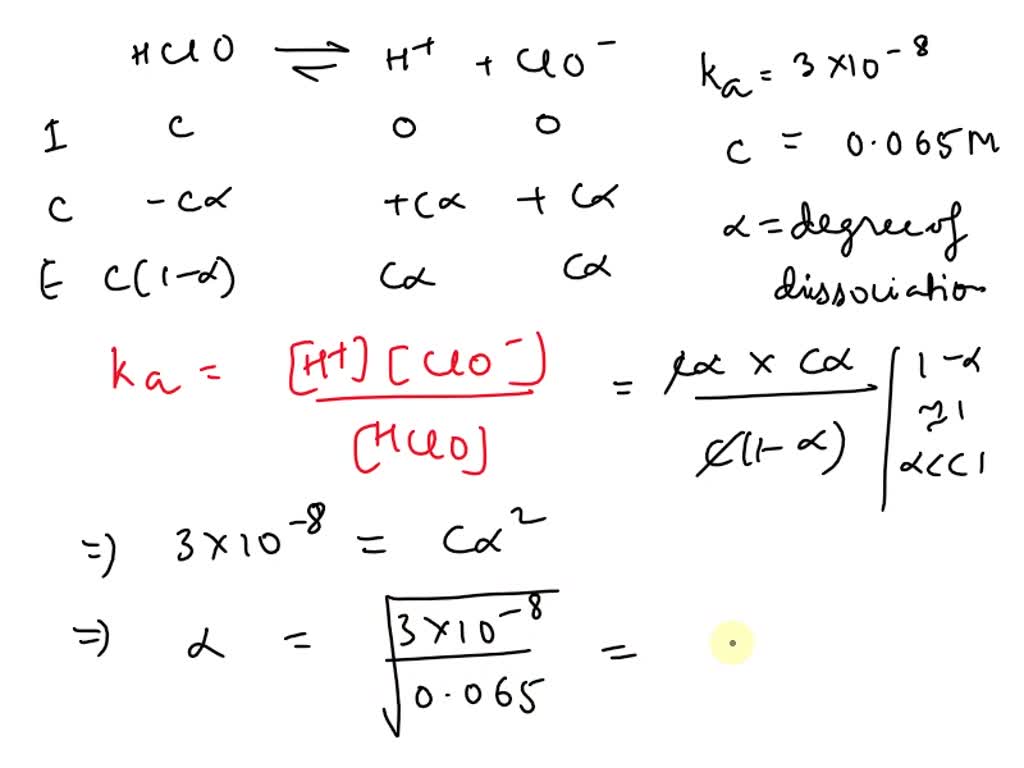 HClO ⇌ H⁺ + ClO⁻
I C 0 0
C -Cα +Cα + Cα
E C(1-α) Cα Cα
ka = 3×10⁻⁸
C = 0.065M
α = degree of
dissociation
ka = [H⁺][ClO⁻] / [HClO] = Cα × Cα / C(1-α)
1-α
≈1
α<<1
⇒) 3×10⁻⁸ = Cα²
⇒) α = √(3×10⁻⁸ / 0.065) =